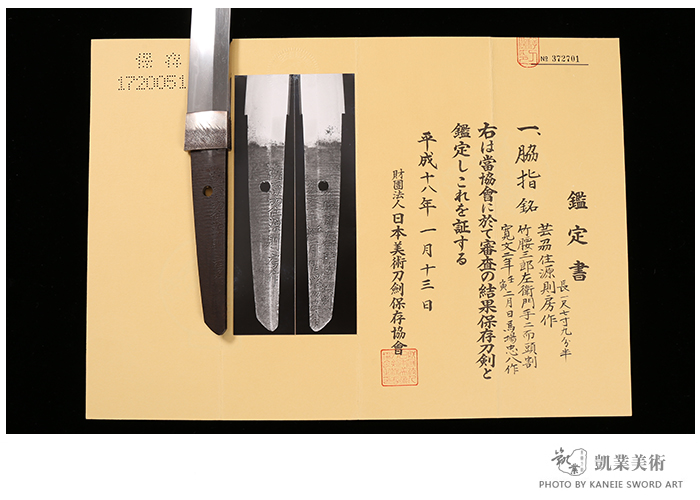 保存
1720051
№ 372701
鑑定書
一、脇指 銘
長一尺七寸九分半
芸州住源則房作
竹腰三郎左衛門手二而頭割
寛文二年壬寅二月日馬場忠八作
右は當協會に於て審査の結果保存刀剣と
鑑定しこれを証する
平成十八年一月十三日
財團法人日本美術刀劍保存協會
凱業美術
PHOTO BY KANEIE SWORD ART